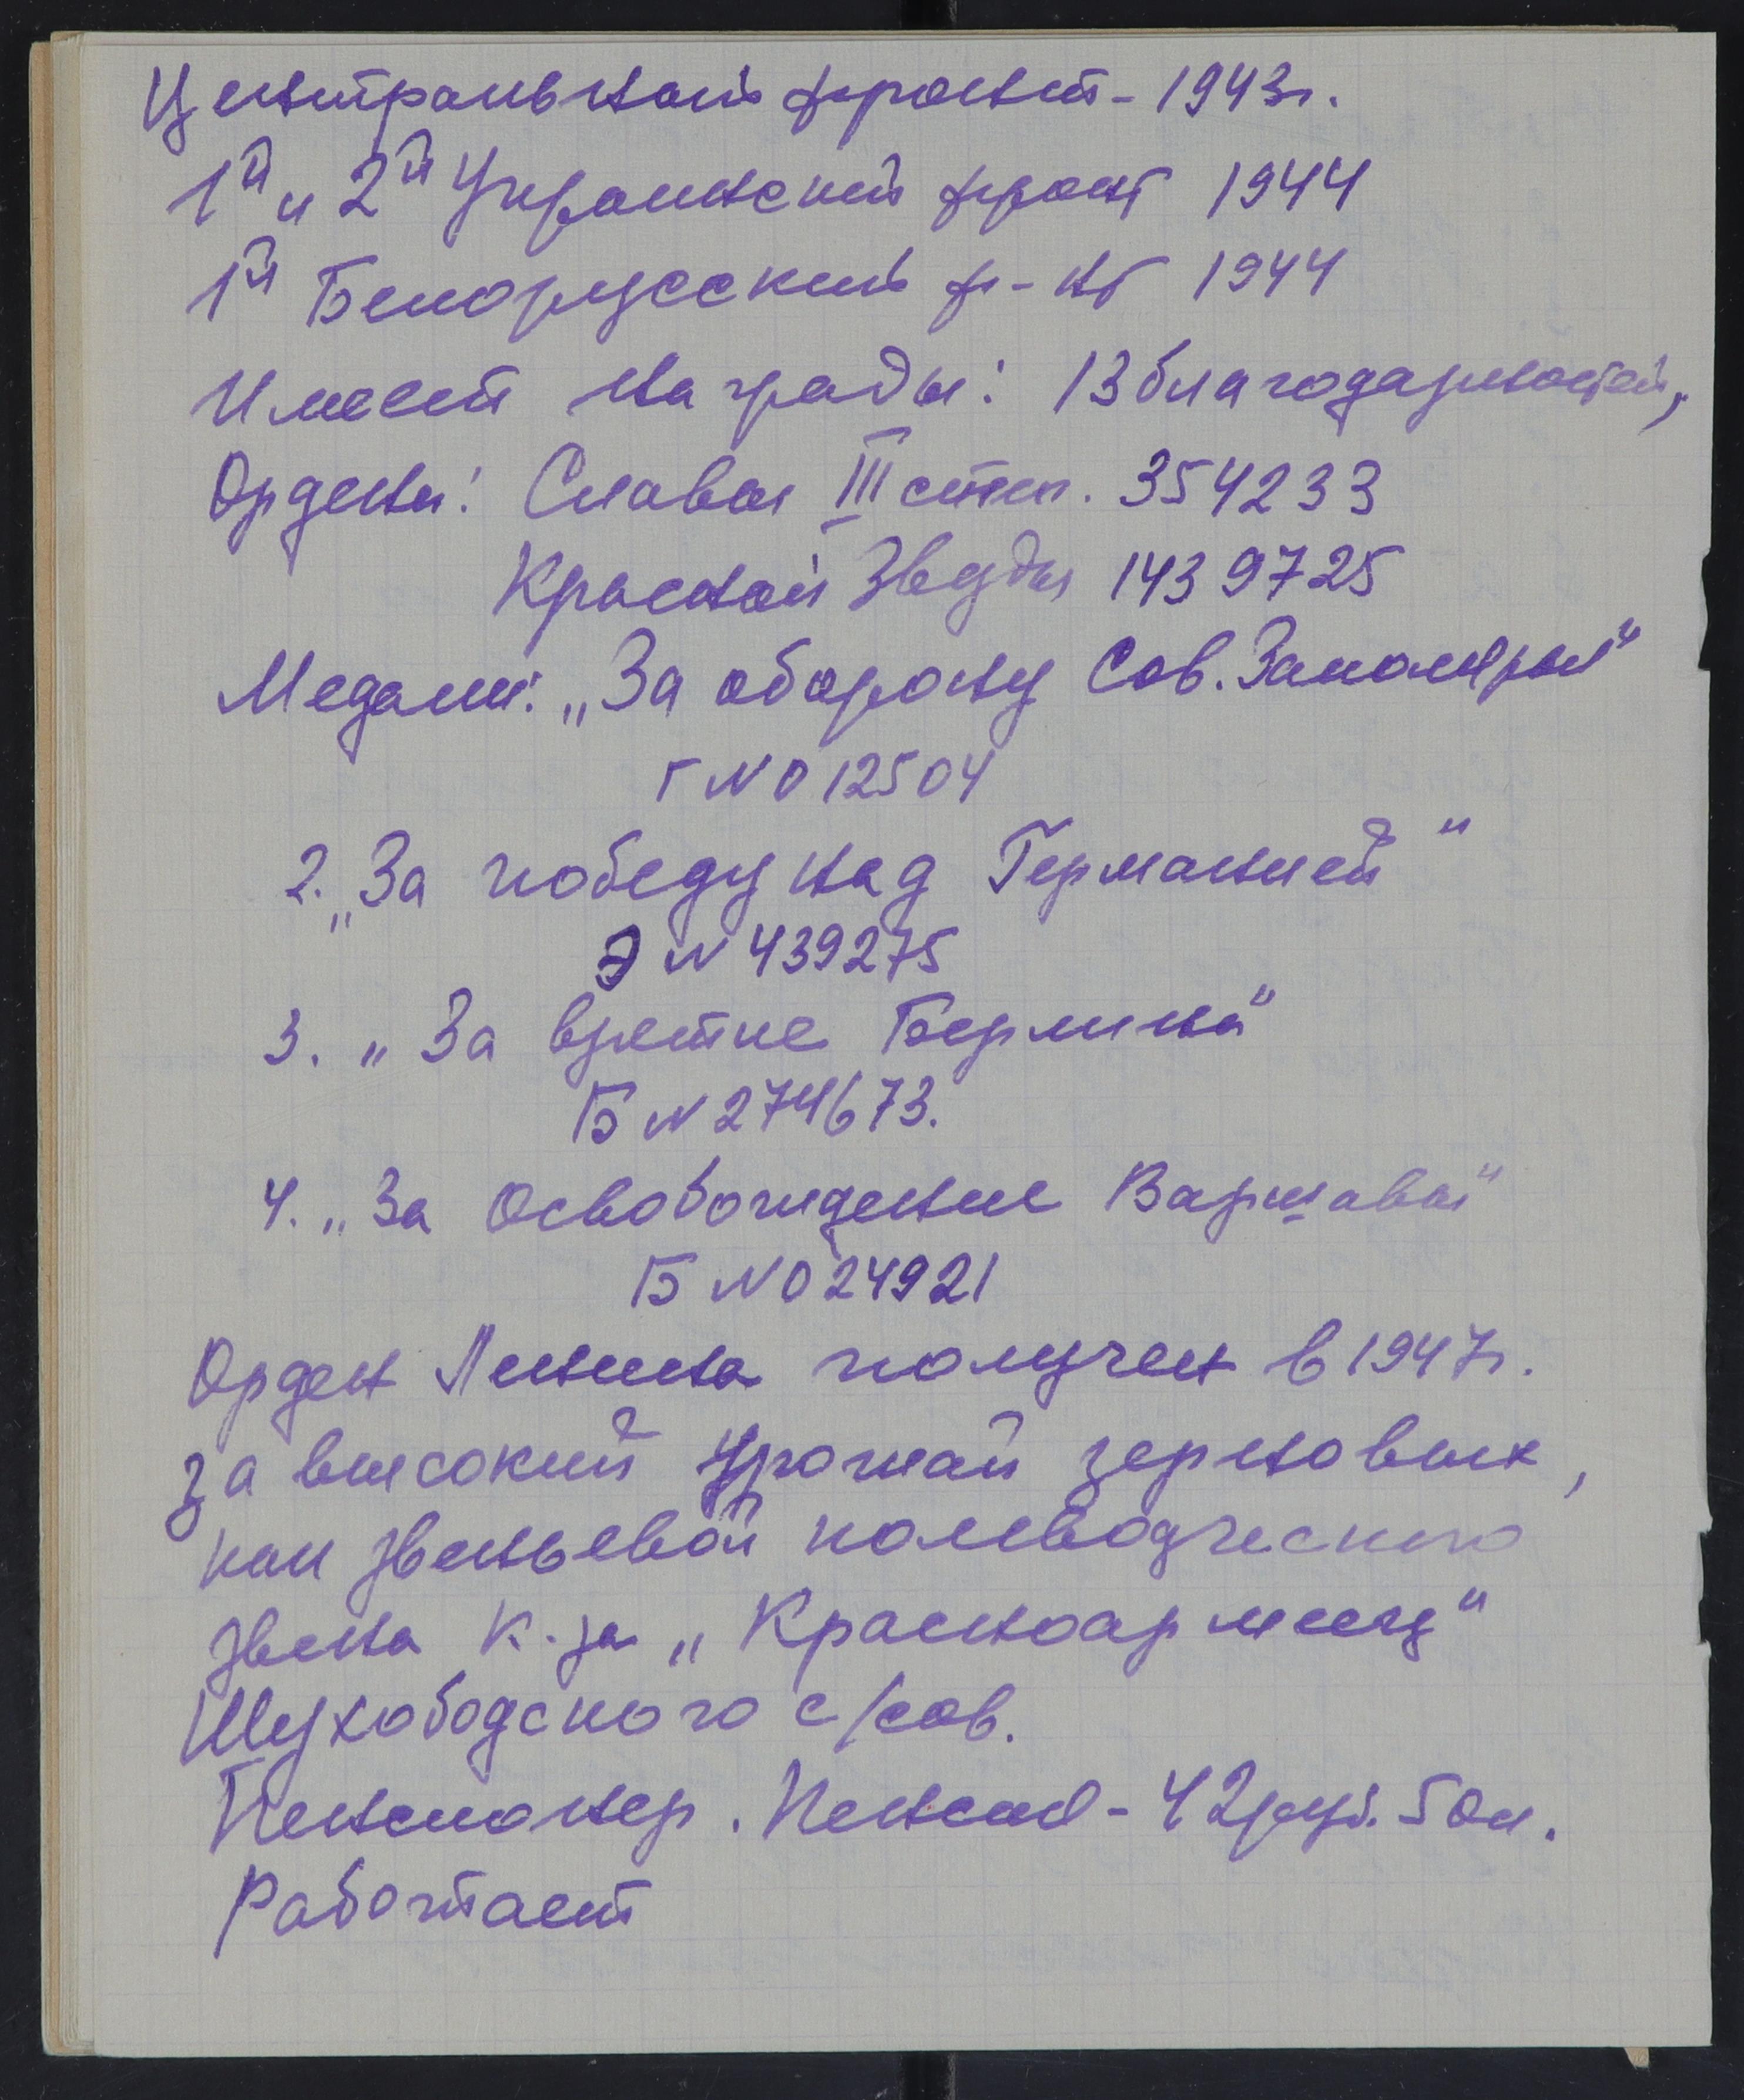 Центральный фронт - 1943г.
1й и 2й Украинский фронт 1944
1й Белорусский ф-нт 1944
Имеет награды: 13 благодарностей,
Ордена: Славы III степ. 354233
Красной Звезды 1439725
Медали: „За оборону Сов. Заполярья"
Г N 012504
2. „За победу над Германией"
Э N 439275
3. „За взятие Берлина"
Б N 274673.
4. „За Освобождение Варшавы"
Б N 024921
Орден Ленина получен в 1947г.
за высокий урожай зерновых,
как звеньевой полеводческого
звена к-за „Красноармеец"
Шухободского с/сов.
Пенсионер. Пенсия - 42 руб. 50 к.
Работает